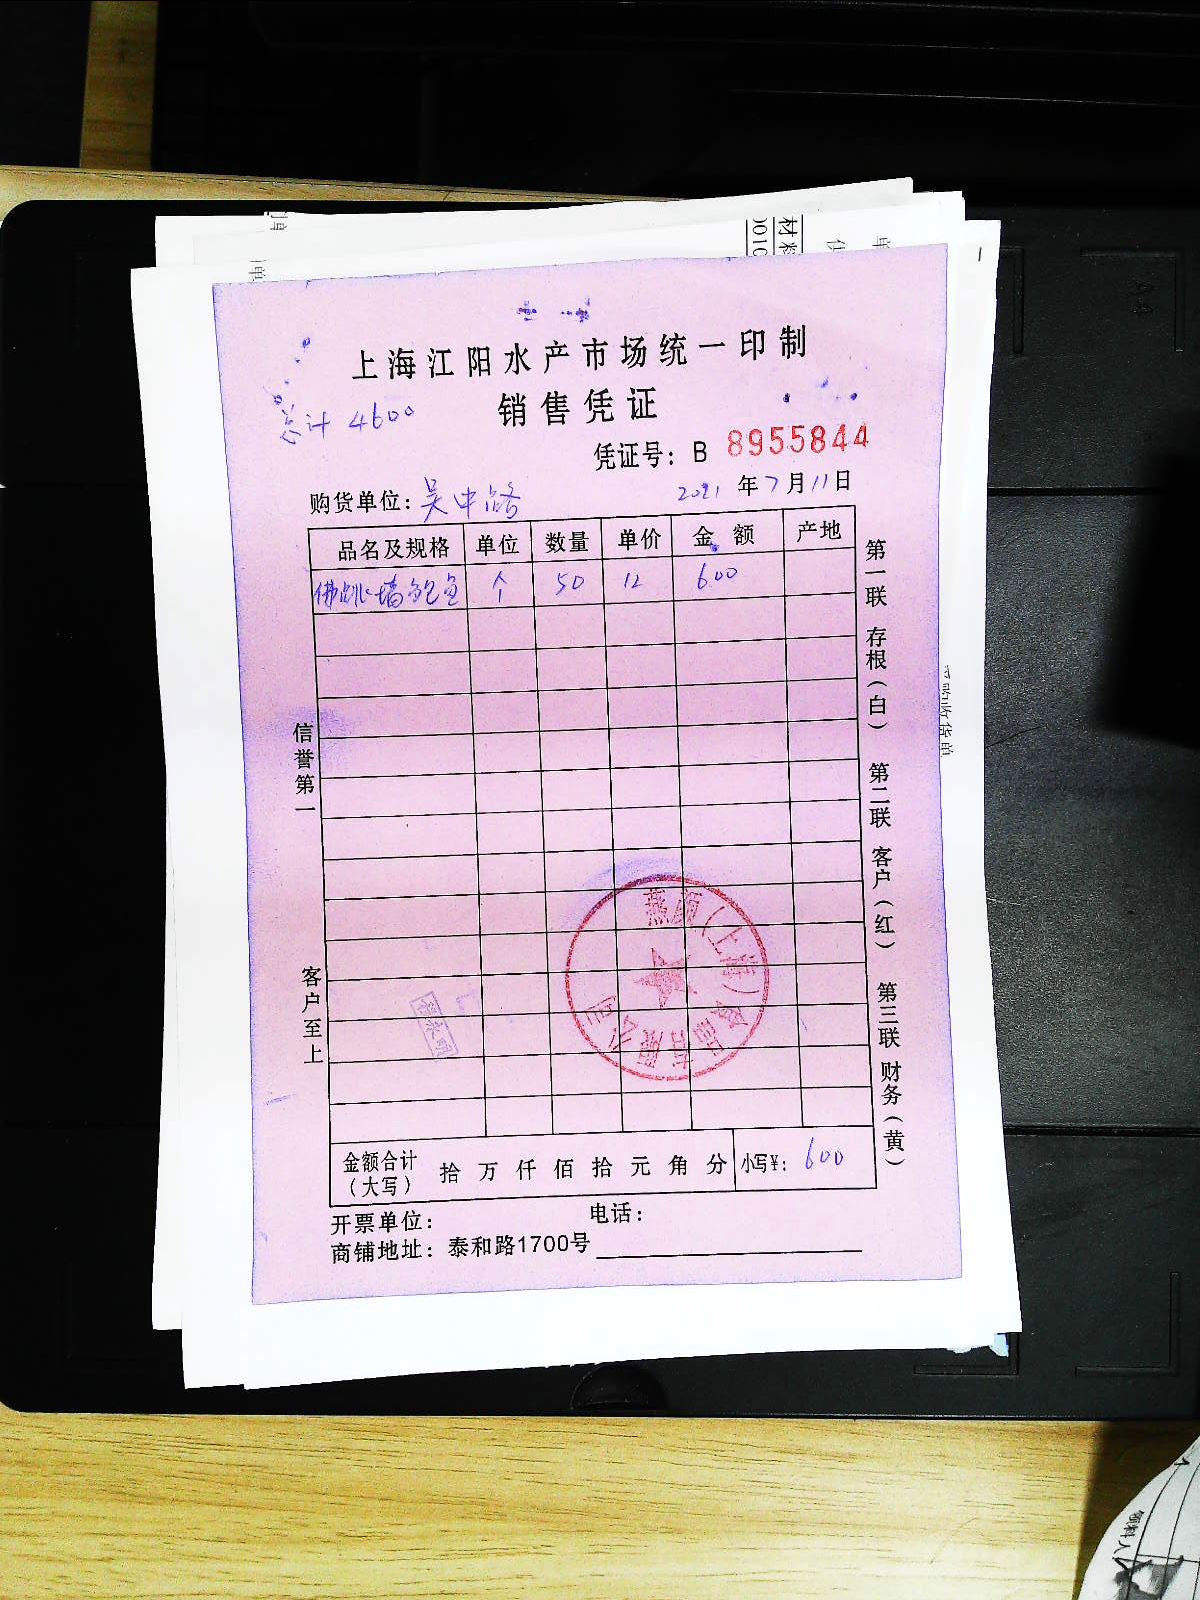 上海江阳水产市场统一印制
总计 4600
销售凭证
凭证号：B 8955844
购货单位：吴中路 2021 年 7 月 11 日
品名及规格 单位 数量 单价 金额 产地
佛跳墙鲍鱼 个 50 12 600
信誉第一
客户至上
第一联 存根（白） 第二联 客户（红） 第三联 财务（黄）
燕颜（上海）食品有限公司
金额合计（大写） 拾 万 仟 佰 拾 元 角 分 小写¥：600
开票单位： 电话：
商铺地址：泰和路1700号
材料
001C
单
收货单
领料人
A4